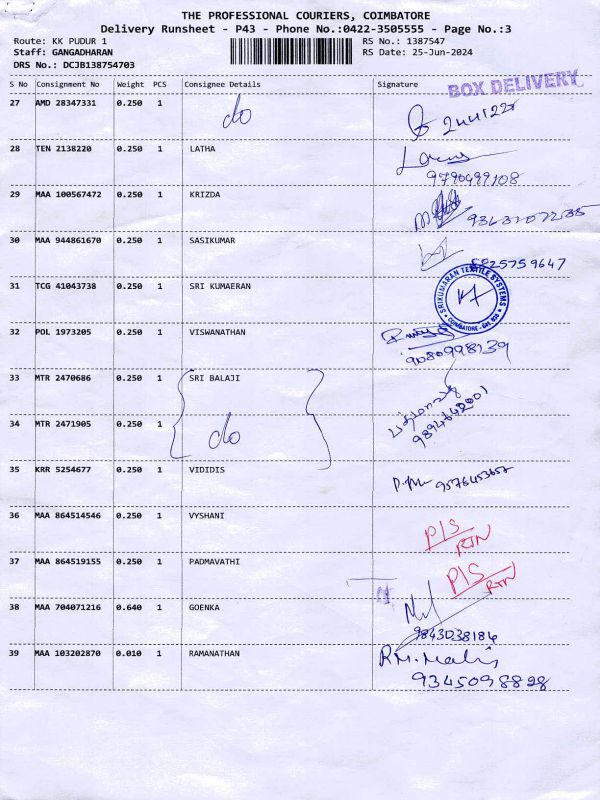 THE PROFESSIONAL COURIERS, COIMBATORE
Delivery Runsheet - P43 - Phone No.:0422-3505555 - Page No.:3
Route: KK PUDUR 1 RS No.: 1387547
Staff: GANGADHARAN RS Date: 25-Jun-2024
DRS No.: DCJB138754703
S No Consignment No Weight PCS Consignee Details Signature
BOX DELIVERY
27 AMD 28347331 0.250 1 do
28 TEN 2138220 0.250 1 LATHA
9790499108
29 MAA 100567472 0.250 1 KRIZDA
30 MAA 944861670 0.250 1 SASIKUMAR
31 TCG 41043738 0.250 1 SRI KUMAERAN
SRIKUMARAN TEXTILE SYSTEMS
32 POL 1973205 0.250 1 VISWANATHAN
9080998139
33 MTR 2470686 0.250 1 SRI BALAJI
34 MTR 2471905 0.250 1 do
35 KRR 5254677 0.250 1 VIDIDIS
36 MAA 864514546 0.250 1 VYSHANI P/S RTN
37 MAA 864519155 0.250 1 PADMAVATHI P/S RTN
38 MAA 704071216 0.640 1 GOENKA
9843038184
39 MAA 103202870 0.010 1 RAMANATHAN
9345098898